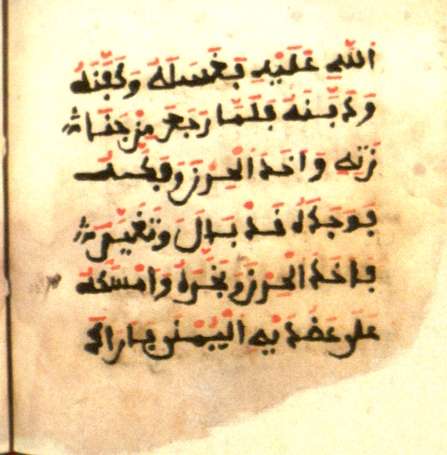 الله عليه فغسله وكفنه
ودفنه فلما رجع من جنا
زته واخذ الحرز وفكه
فوجده قد وتغير
فاخذ الحرز وبخره وامسكه
على عضديه اليمنى فاراد